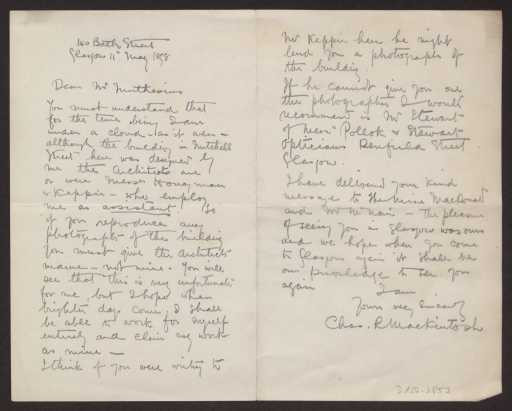 140 Bath Street
Glasgow 11th May 1898
Dear Mr Muthesius
You must understand that
for the time being I am
under a cloud - as it were -
although the building in Mitchell
Street here was designed by
me the Architects are
or were Messrs Honeyman
& Keppie - who employ
me as assistant. So
if you reproduce any
photographs of the building
you must give the architects
name - not mine. You will
see that this is very unfortunate
for me, but I hope when
brighter days come, I shall
be able to work for myself
entirely and claim my work
as mine -
I think if you were writing to
Mr Keppie here he might
lend you a photograph of
the building
If he cannot give you one
the photographer I would
recommend is Mr Stewart
of Messrs Pollok & Stewart
Opticians Renfield Street
Glasgow.
I have delivered your kind
message to the Misses Macdonald
and Mr McNair - the pleasure
of seeing you in Glasgow was ours
and we hope when you come
to Glasgow again it shall be
our privilege to see you
again
I am
Yours very sincerely
Chas. R Mackintosh